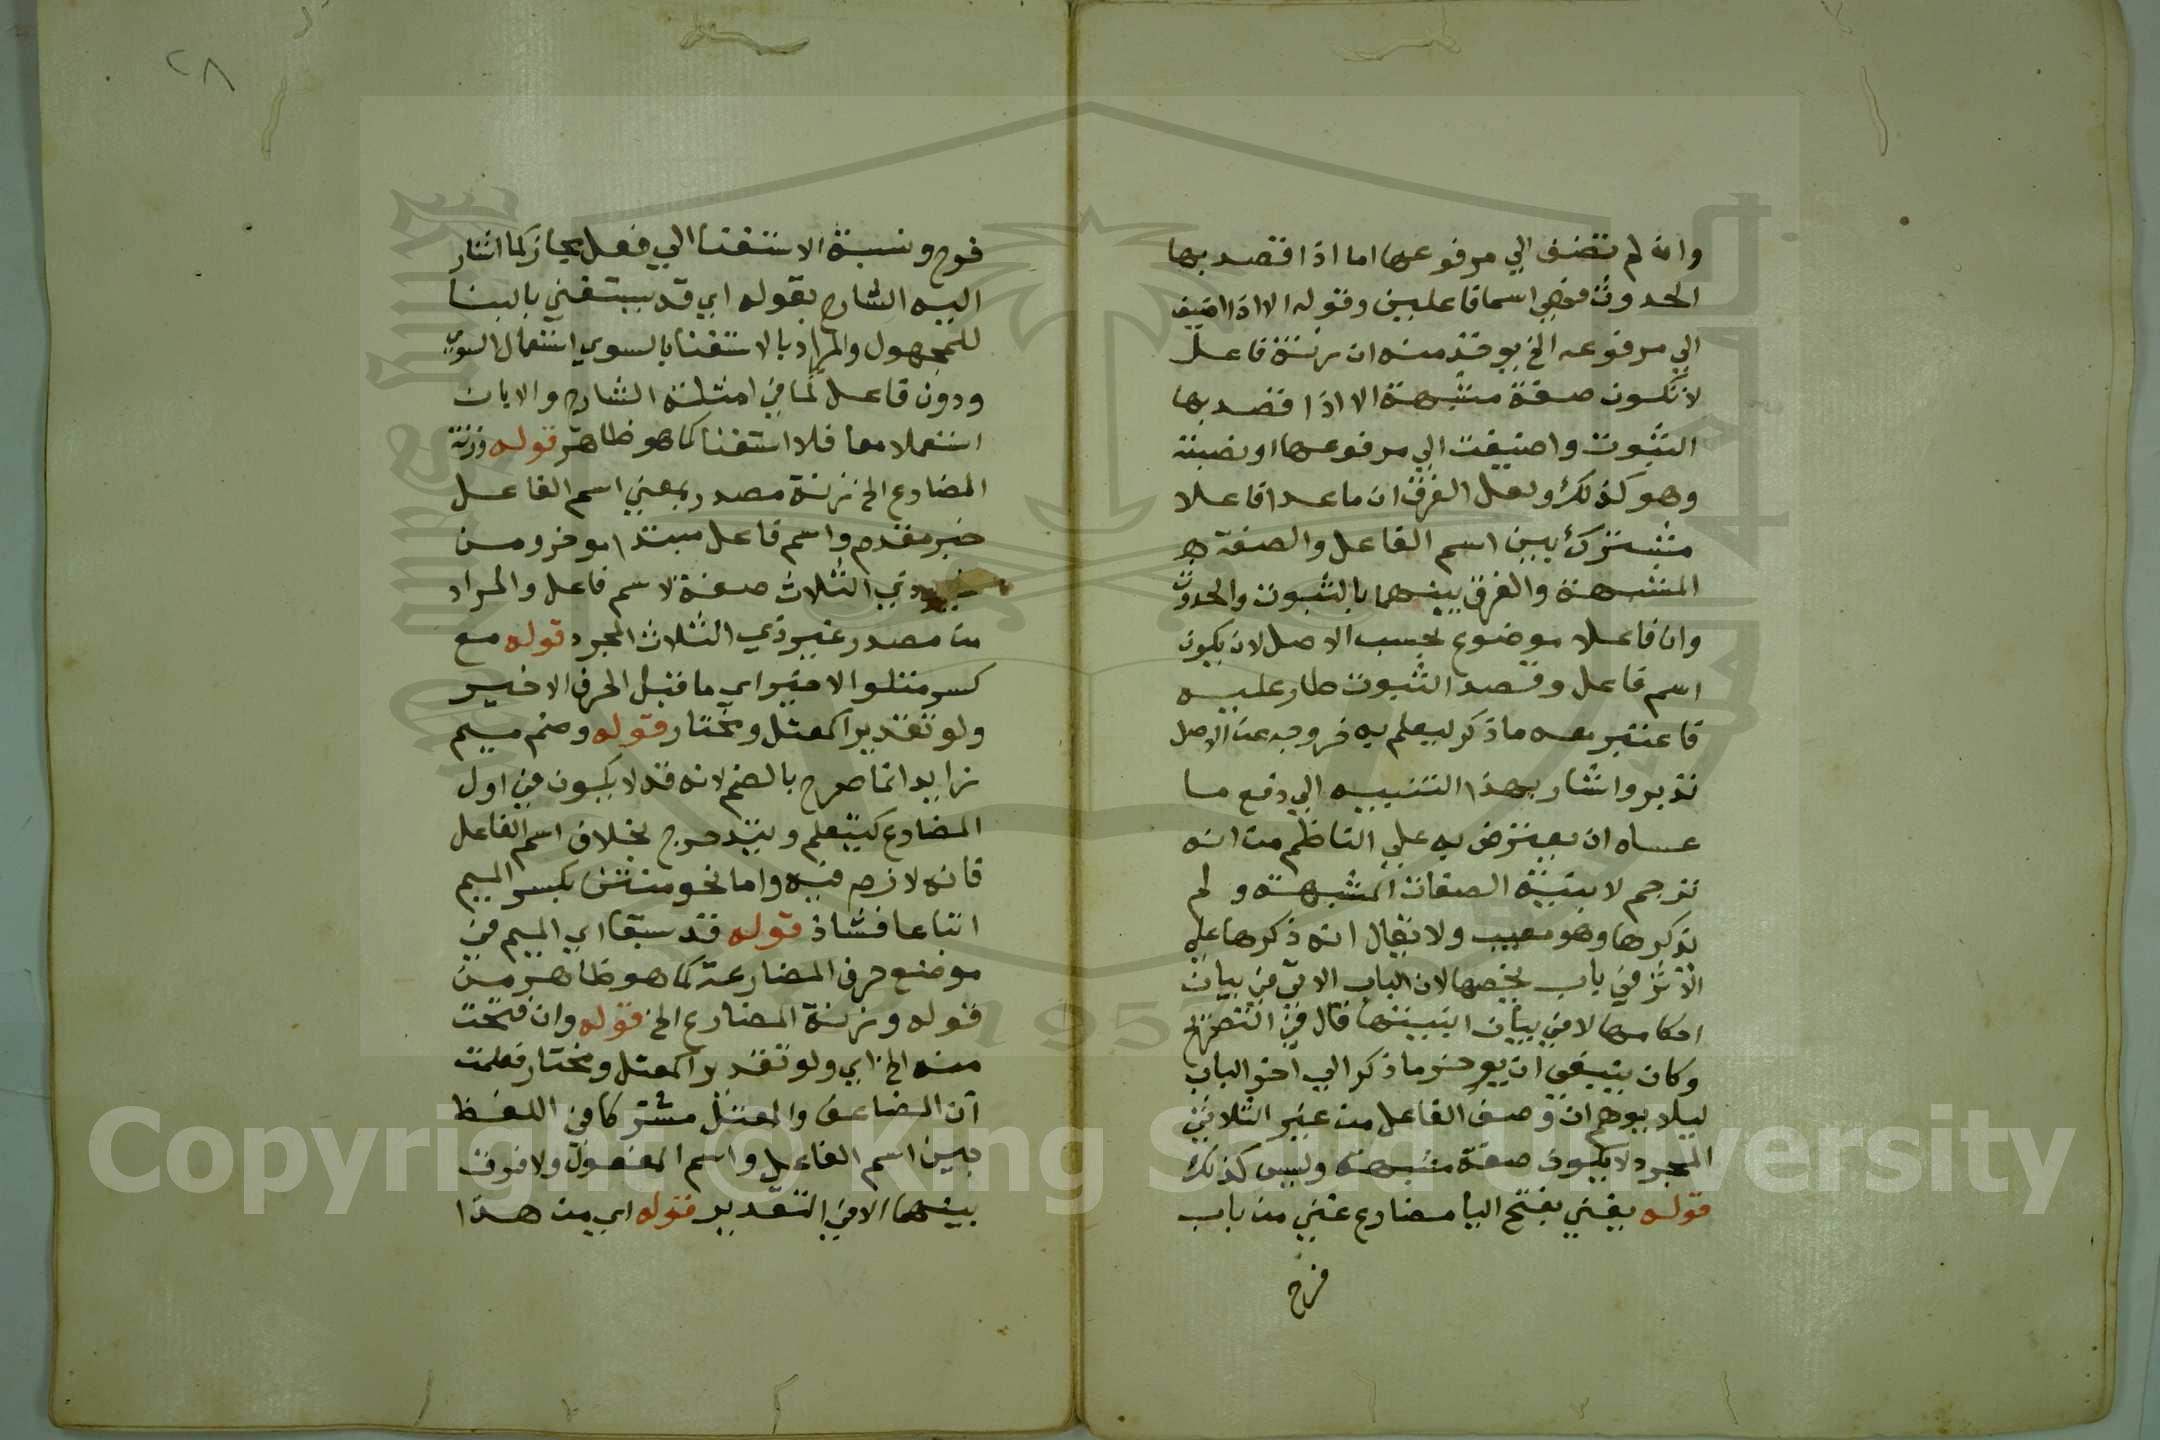 وان لم تضف الي مرفوعها اما اذا قصد بها
الحدوث فهي اسما فاعلين وقوله الا اذا اضيف
الي مرفوعه الخ يوخذ منه ان زنة فاعل
لا تكون صفة مشبهة الا اذا قصد بها
الثبوت واضيفت الي مرفوعها او نصبته
وهو كذلك ولعل الفرق ان ما عدا فاعلا
مشترك بين اسم الفاعل والصفة
المشبهة والفرق بينهما بالثبوت والحدوث
وان فاعلا موضوع بحسب الاصل لان يكون
اسم فاعل وقصد الثبوت طار عليه
فاعتبر معه ما ذكر ليعلم به خروجه عن الاصل
تدبر واشار بهذا التنبيه الي دفع ما
عساه ان يعترض به علي الناظم من انه
ترجم لابنية الصفات المشبهة ولم
يذكرها وهو معيب ولا يقال انه ذكرها علي
الاثر في باب يخصها لان الباب الاتي في بيان
احكامها لا في بيان ابنيتها قال في التصريح
وكان ينبغي ان يوخر ما ذكر الي اخر الباب
ليلا يوهم ان وصف الفاعل من غير الثلاثي
المجرد لا يكون صفة مشبهة وليس كذلك
قوله يغني بفتح اليا مضارع غني من باب
فرح
٢٨
فرح ونسبة الاستغنا الي فعل مجاز كما اشار
اليه الشارح بقوله اي قد يستغني بالبنا
للمجهول والمراد بالاستغنا بالسوي استعمال السوي
ودون فاعل لما في امثلة الشارح والا بان
استعملا معا فلا استغنا كما هو ظاهر قوله وزنة
المضارع الخ زنة مصدر بمعني اسم الفاعل
خبر مقدم واسم فاعل مبتدا موخر ومن
ذي الثلاث صفة لاسم فاعل والمراد
من مصدر غير ذي الثلاث المجرد قوله مع
كسر متلو الاخير اي ما قبل الحرف الاخير
ولو تقديرا كمعتل ومختار قوله وضم ميم
زايد انما صرح بالضم لانه قد لا يكون في اول
المضارع كيتعلم ويتدحرج بخلاف اسم الفاعل
فانه لازم فيه واما نحو منتن بكسر الميم
اتباعا فشاذ قوله قد سبقا اي الميم في
موضع حرف المضارعة كما هو ظاهر من
قوله وزنة المضارع الخ قوله وان فتحت
منه الخ اي ولو تقديرا كمعتل ومختار فعلمت
ان المضاعف والمعتل مشتركا في اللفظ
بين اسم الفاعل واسم المفعول ولا فرق
بينهما الا في التقدير قوله اي من هذا
Copyright © King Saud University